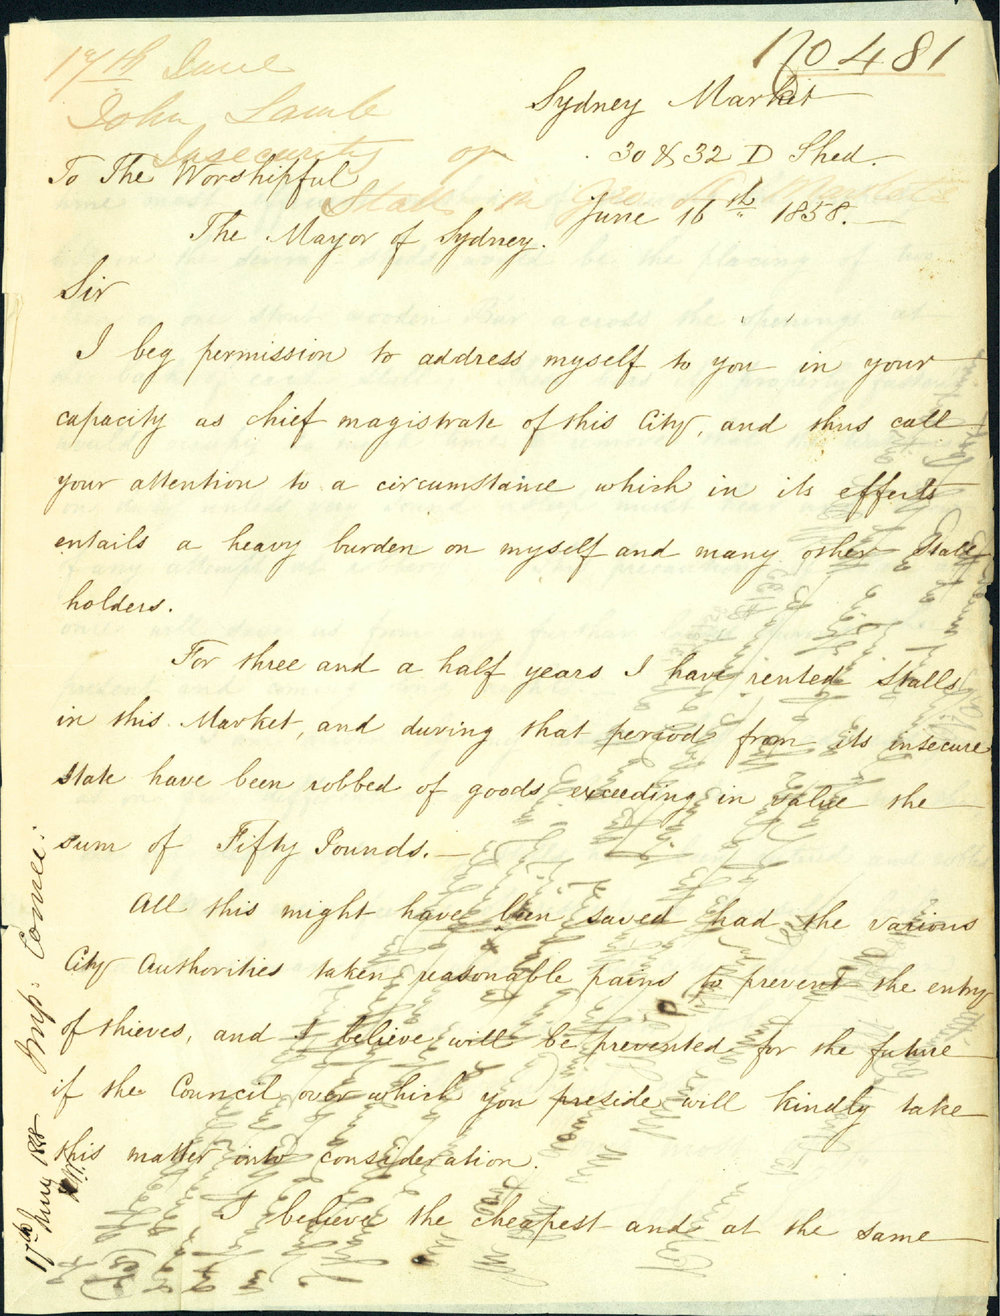 17th June
John Lamb
Insecurity of
Stalls in Geo St Markets
No 481
Sydney Market
30 & 32 D Shed.
June 16th 1858.
To The Worshipful
The Mayor of Sydney.
Sir
I beg permission to address myself to you in your
capacity as chief magistrate of this City, and thus call
your attention to a circumstance which in its effects
entails a heavy burden on myself and many other Stall
holders.
For three and a half years I have rented Stalls
in this Market, and during that period from its insecure
state have been robbed of goods exceeding in value the
sum of Fifty Pounds.
All this might have been saved had the various
City Authorities taken reasonable pains to prevent the entry
of thieves, and I believe will be prevented for the future
if the Council over which you preside will kindly take
this matter into consideration.
I believe the cheapest and at the same
17th June 1858 Imp: Comee: